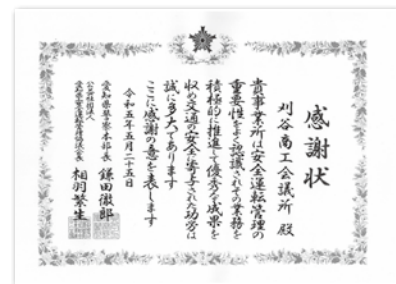 感謝状
刈谷商工会議所 殿
貴事業所は安全運転管理の
重要性をよく認識されその業務を
積極的に推進して優秀な成果を
収め交通の安全に寄与された功労は
誠に多大であります
ここに感謝の意を表します
令和五年五月二十五日
愛知県警察本部長 鎌田徹郎
公益社団法人
相羽繁生